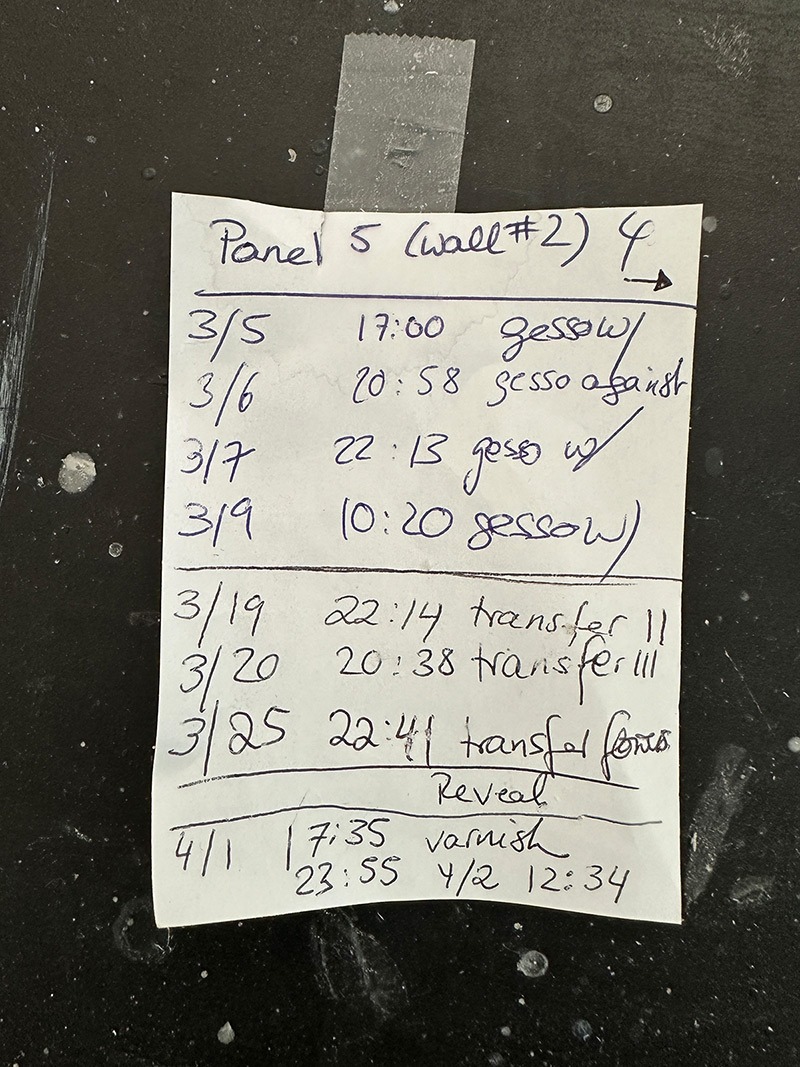 Panel 5 (wall #2) 4
→
3/5 17:00 gesso w/
3/6 20:58 gesso against
3/7 22:13 gesso w/
3/9 10:20 gesso w/
3/19 22:14 transfer II
3/20 20:38 transfer III
3/25 22:41 transfer
Reveal
4/1 17:35 varnish
23:55 4/2 12:34